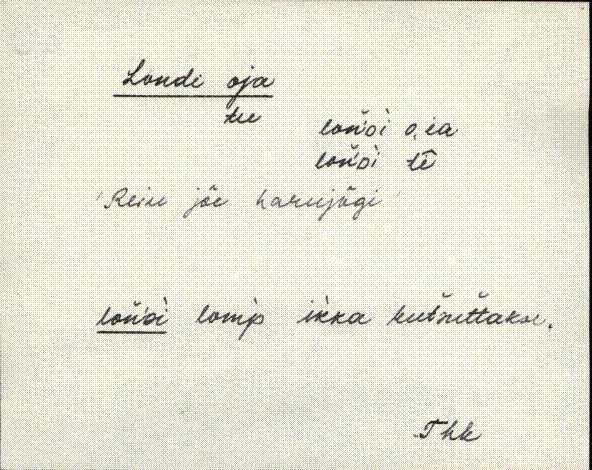 Londi oja
tee
loǹ̆ᴅì o.ia
loǹ̆ᴅì tē̂
'Reiu jõe harujõgi'
loǹ̆ᴅì lomp ikka kutsuttakse.
Thk